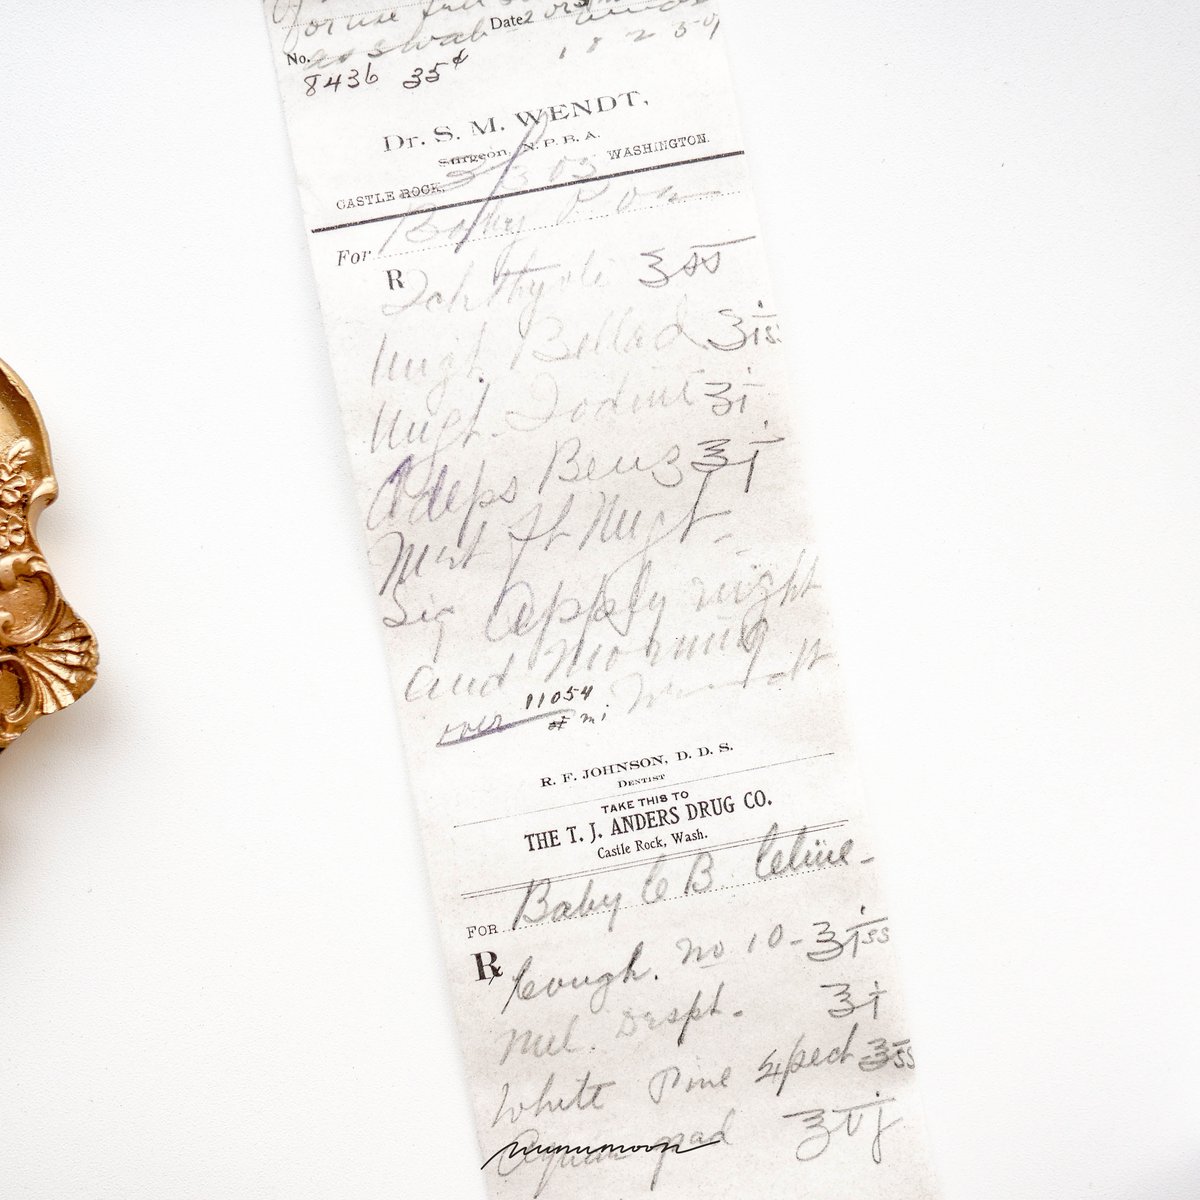 for use full
as swab
Date
No.
8436 35¢
18259
Dr. S. M. WENDT,
Surgeon, N. P. B. A.
CASTLE ROCK, WASHINGTON.
3/ 03
For Baby
R Ichthyoli ʒ ss
Ungt. Bellad ʒ iss
Ungt. Iodine ʒ i
Adeps Benz ℥ j
Mist ft Ungt
Sig Apply night
and Morning
over 11054 Wendt
R. F. JOHNSON, D. D. S.
DENTIST
TAKE THIS TO
THE T. J. ANDERS DRUG CO.
Castle Rock, Wash.
FOR Baby C B Cline
℞ Cough. No 10 - ℥ iss
Mel. Despt. ℥ i
White Pine Spect ℥ ss
Aqua qsad ℥ ij
nunumoon